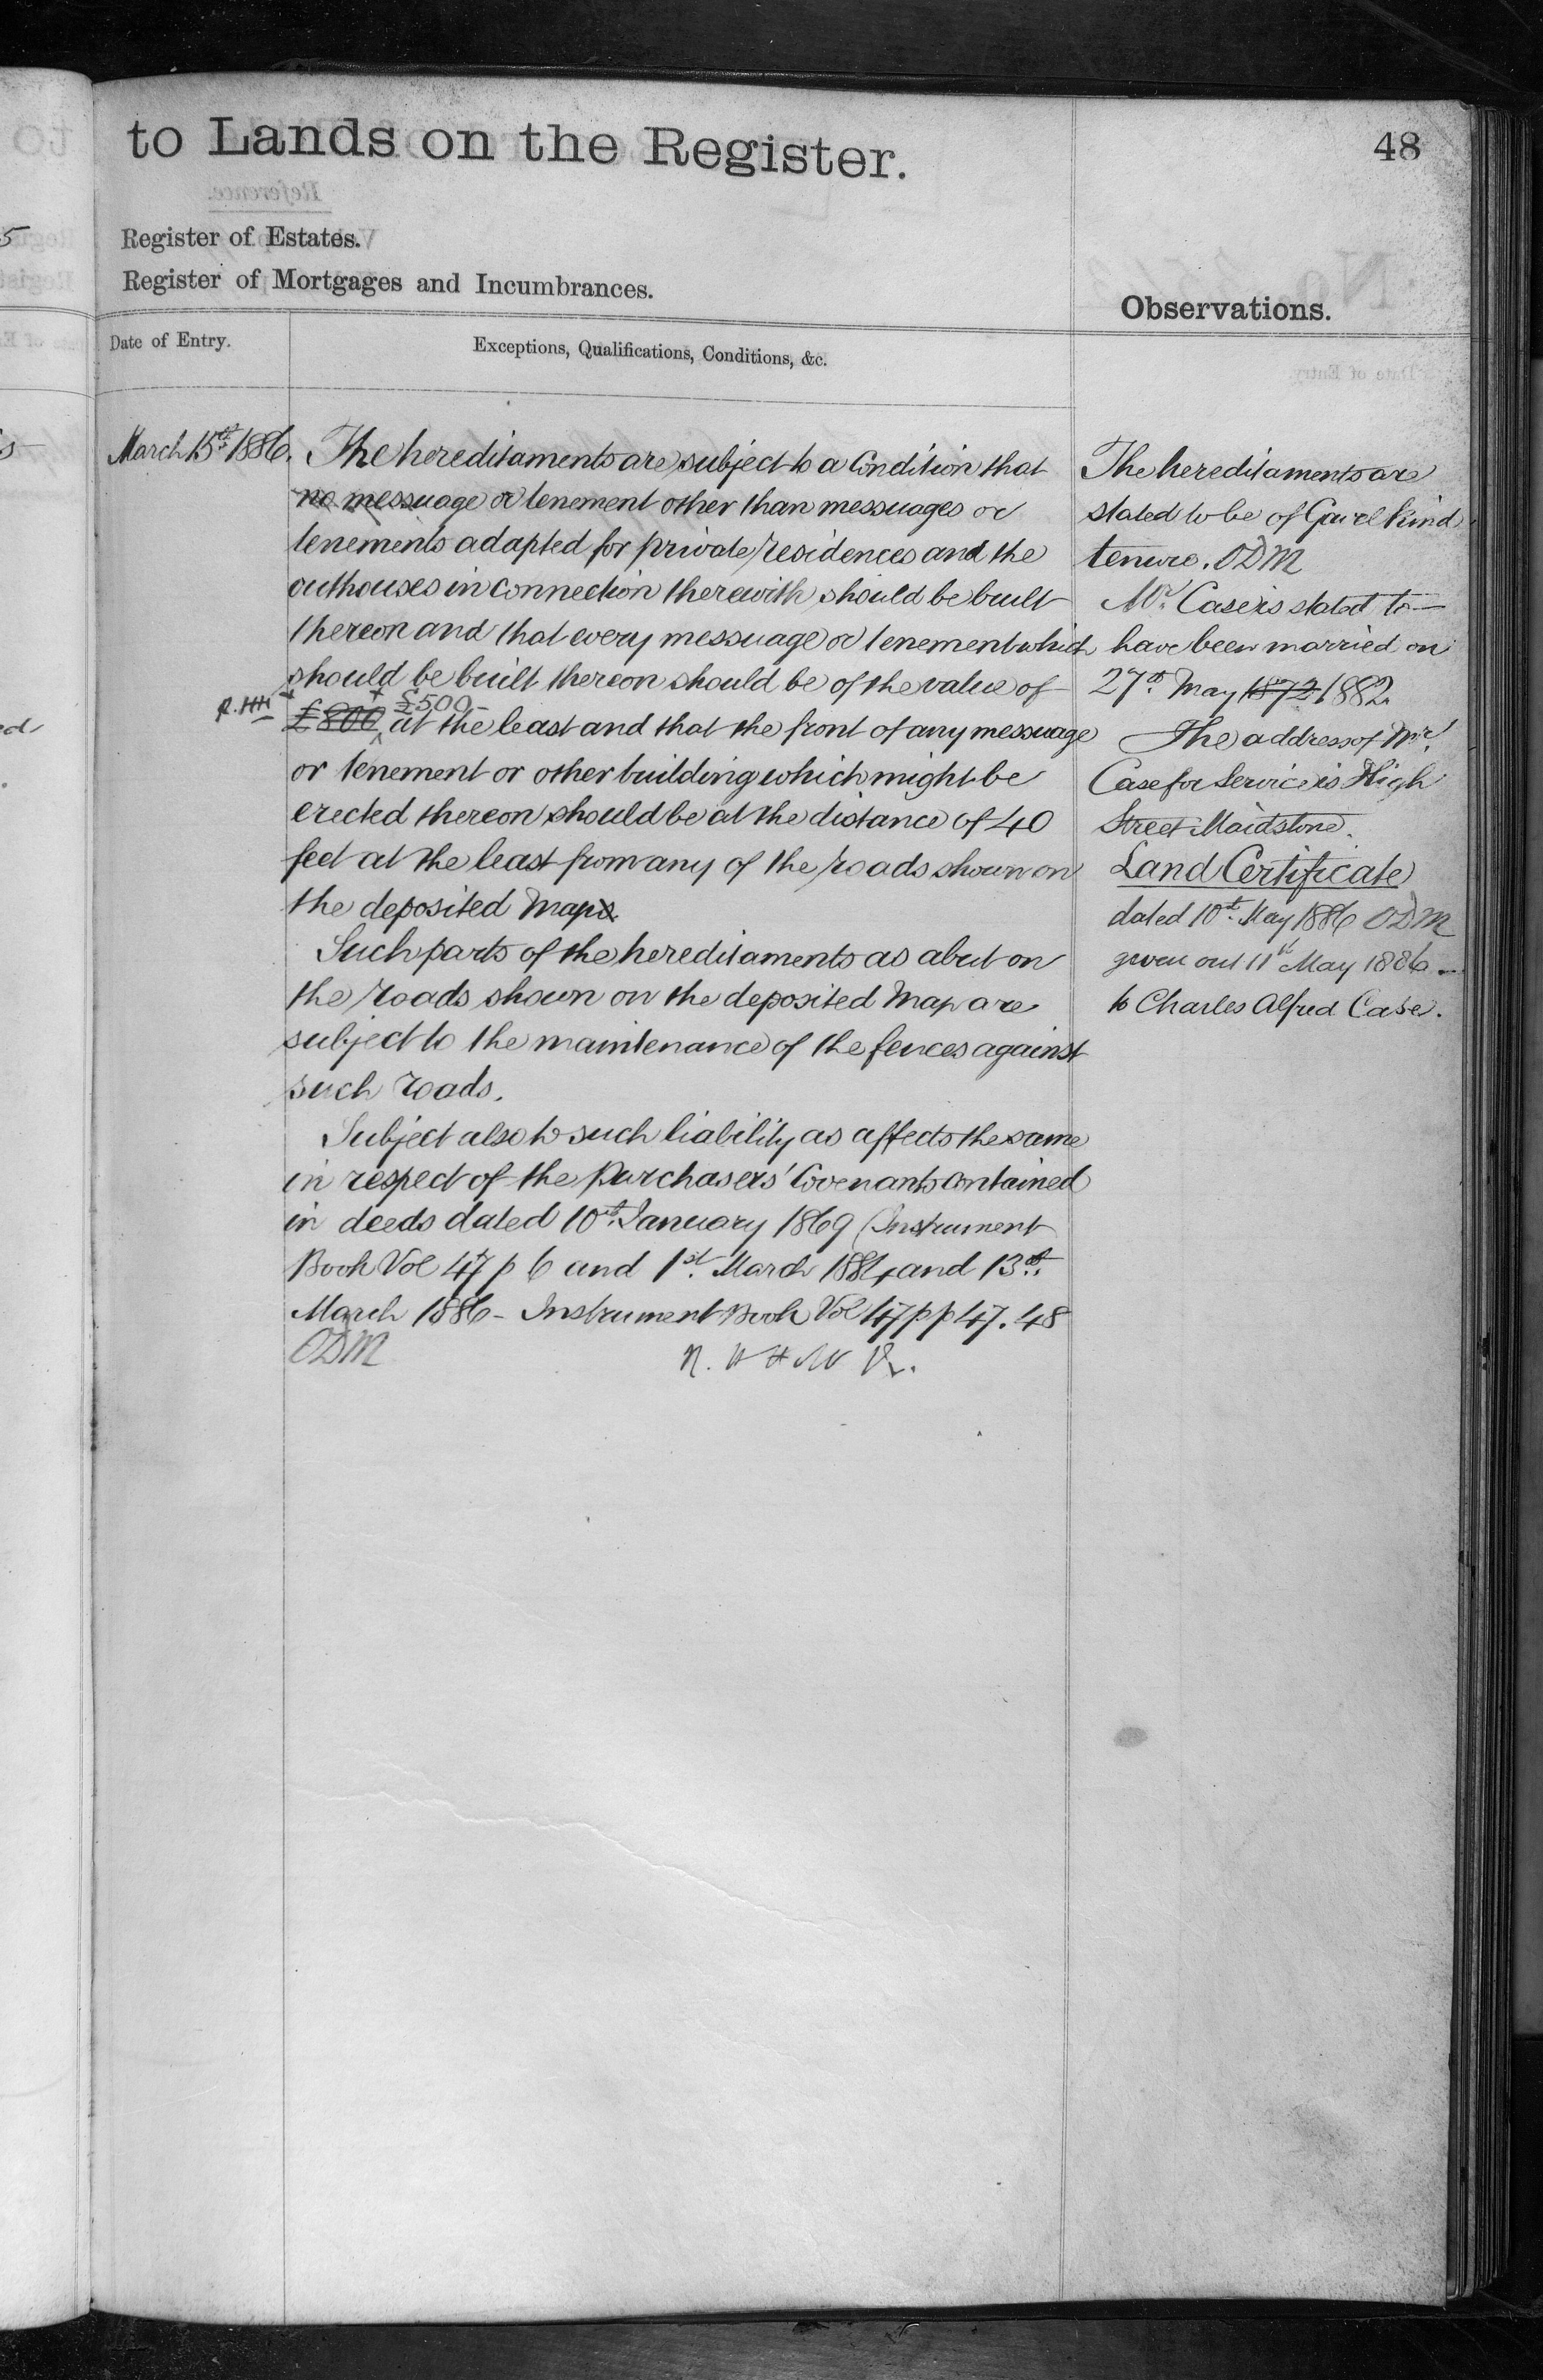 to Lands on the Register.
48
Register of Estates.
Register of Mortgages and Incumbrances.
Observations.
Date of Entry.
Exceptions, Qualifications, Conditions, &c.
March 15th 1886.
The hereditaments are subject to a Condition that
no messuage or tenement other than messuages or
tenements adapted for private residences and the
outhouses in connection therewith should be built
thereon and that every messuage or tenement which
should be built thereon should be of the value of
£500
£800 at the least and that the front of any messuage
or tenement or other building which might be
erected thereon should be at the distance of 40
feet at the least from any of the roads shown on
the deposited Map.
Such parts of the hereditaments as abut on
the roads shown on the deposited Map are
subject to the maintenance of the fences against
such roads.
Subject also to such liability as affects the same
in respect of the Purchasers' Covenants contained
in deeds dated 10th January 1869 (Instrument
Book Vol 47 p 6 and 1st March 1884 and 13th
March 1886 - Instrument Book Vol 47 pp 47. 48
ODM
The hereditaments are
stated to be of Gavelkind
tenure. ODM
Mr. Case is stated to
have been married on
27th May 1872 1882
The address of Mr.
Case for Service is High
Street Maidstone.
Land Certificate
dated 10th May 1886 ODM
given out 11th May 1886
to Charles Alfred Case.